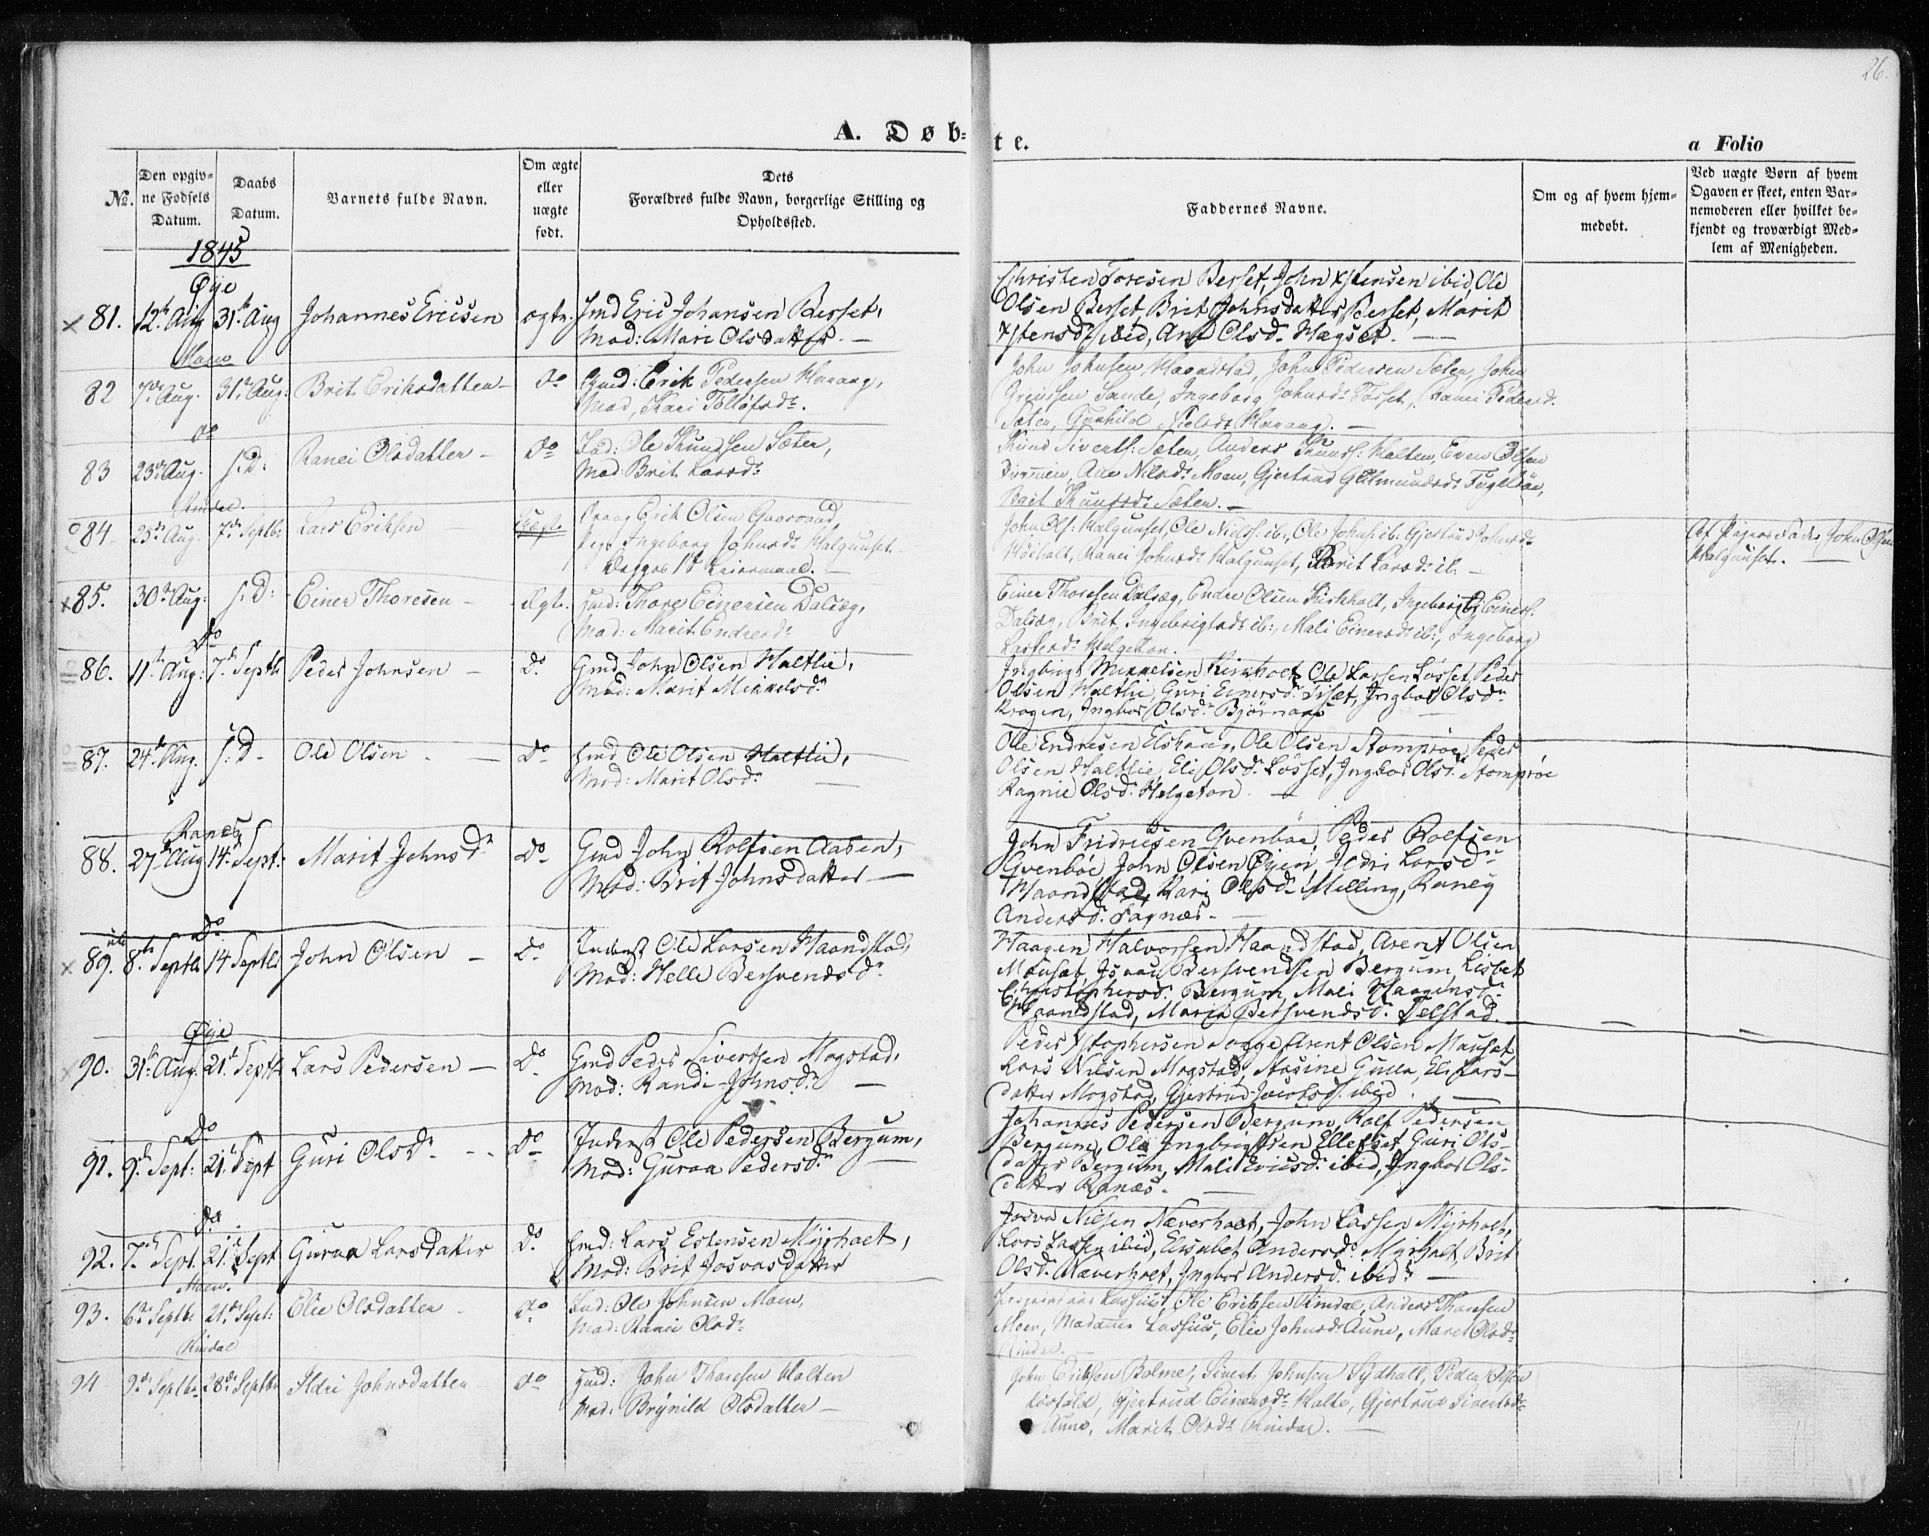 26.
A. Døb-
te.
a Folio
No.
Den opgiv-
ne Fødsels
Datum.
Daabs
Datum.
Barnets fulde Navn.
Om ægte
eller
uægte
født.
Dets
Forældres fulde Navn, borgerlige Stilling og
Opholdssted.
Faddernes Navne.
Om og af hvem hjem-
medøbt.
Ved uægte Børn af hvem
Opgaven er skeet, enten Bar-
nemoderen eller hvilket be-
kjendt og troværdigt Med-
lem af Menigheden.
1845
Øye
81. 12th Aug 31te Aug Johannes Ericsen ægte. Gmd Eric Johansen Berset,
Mod: Mari Olsdatter. —
Christen Toresen Berset, John Estensen ibid, Ole
Olsen Berset, Brit Johnsdatter Berset, Marit
Estensdr ibid, Ane Olsd. Hægset. —
Moen
82 7de Aug. 31te Aug: Brit Eriksdatter — Do Gmd: Erik Pedersen Haaaug,
Mod, Kari Tollofsdr.
John Johnsen, Haandstad, John Pedersen Sæter, John
Sande, Ingeborg Johnsdr Fosset, Ranei Pedersdr
Sæter, Gunhild Nielsdr —
Do
83 23de Aug. s: D: Ranei Olsdatter — Do Ole Knudsen Sæter,
Mod Brit Larsdr
Knud Siverts: Sæter, Anders Knuds: Holten, Even Olsen
Ane Nilsdr Moen, Gjertrud Gutmundsdr Fugelsøe,
Brit Knudsdr Sæter. —
Rindal.
84 25de Aug. 7de Septbr: Lars Eriksen — Uægte. Erik Olsen
Pige Ingeborg Johnsdr Halgunset
Begges 1te Leiermaal. —
John Ols: Halgunset, Ole Niels: ib:, Ole Johns: ib. Gjertrud Johnsdr
Ranei Johnsdr Halgunset, Marit Larsdr ib. —
Af Pigens Fader John Olsen
Halgunset. —
85. 30te Aug: s: D: Einer Thoresen — Ægte. Gmd: Thore Einersen Dalsæg,
Mod: Marit Endresdr
Einer Thoresen Dalsæg, Endre Olsen Kirkholt, Ingebrigt Einers:
Dalsæg, Brit Ingebrigtsdr ib:, Mali Einersdr ib:, Ingeborg
Larsdr Helgeton. —
Do
86. 11te Aug: 7de Septb Peder Johnsen — Do Gmd John Olsen Haltlie,
Mod: Marit Mikkelsdr
Ingbrigt Mikkelsen Kirkholt Ole Larsen Løsset, Peder
Olsen Haltlie, Guri Einersdr Tiset, Ingbor Olsdr
Krogen, Ingbor Olsdr Bjørnaas
87. 24de Aug. s: D. Ole Olsen — Do Gmd Ole Olsen Haltlie,
Mod: Marit Olsdr —
Ole Endresen Elshaug, Ole Olsen Stomprøe, Peder
Olsen Haltlie, Eli Olsdr Løsset, Ingbor Olsdr Stomprøe
Ragnie Olsdr Helgeton. —
Ranes
88. 27de Aug 14de Sept: Marit Johnsdr Do Gmd John Rolfsen Aasen,
Mod: Brit Johnsdatter —
John Fridricsen Qvenbøe, Peder Rolfsen
Qvenbøe John Olsen Øyen, Ildri Larsdr
Haandstad, Kari Olsd. Melling, Raneig
Andersdr Sagnæs. —
Do
89. 8de Septb 14 Septb John Olsen — Do Inderst Ole Larsen Haandstad,
Mod: Helle Bersvendsdr
Haagen Halvorsen Haandstad, Arent Olsen
Mauset, Bersvendsen Bergum, Lisbet
Christophersdr Bergum, Mali Haagensdr
Haandstad, Maria Bersvendsdr Telstad.
Øye
90. 31te Aug. 21de Septb Lars Pedersen — Do Gmd Peder Sivertsen Mogstad,
Mod: Randi Johnsdr —
Peder Estophersen Sogge Arent Olsen Mauset
Lars Nilsen Mogstad, Stasine Gulla, Eli Lars-
datter Mogstad, Gjertrud Jacobsd. ibid. —
Do
91. 9de Sept: 21de Sept Guri Olsdr — Do Inderst Ole Pedersen Bergum,
Mod: Guraa Pedersdr —
Johannes Pedersen Bergum, Rolf Pedersen
Bergum, Ole Ingbrigtsen Ellefset, Guri Ols-
datter Bergum, Mali Ericsdr ibid, Ingbor Ols-
datter Ranæs. —
Do.
92. 7de Sept. 21de Sept Guraa Larsdatter Do Gmd: Lars Estensen Myrholt,
Mod: Brit Josvasdatter
Josva Nilsen Næverholt, John Larsen Myrholt,
Lars Larsen ibid, Elisabet Andersdr Myrholt, Brit
Olsdr Næverholt, Ingbor Andersdr ibid —
Moen.
93. 6te Septbr 21de Sept: Elie Olsdatter Do Ole Johnsen Moen,
Mod: Ranei Olsdr
Lassius, Ole Eriksen Rindal, Anders Thoresen
Moen, Madame Lassius, Elie Johnsdr Aune, Maret Olsdr
Rindal. —
Rindal
94 9de Septbr 28de Septbr Ildri Johnsdatter Do Gmd: John Thoresen Holten
Mod: Brynild Olsdatter —
John Eriksen Bolme, Sivert Johnsen Sydhall, Peder Olsen
Gjertrud Einersdr Halte, Gjertrud Sivertsdr
Aune, Marit Olsdr Rindal. —